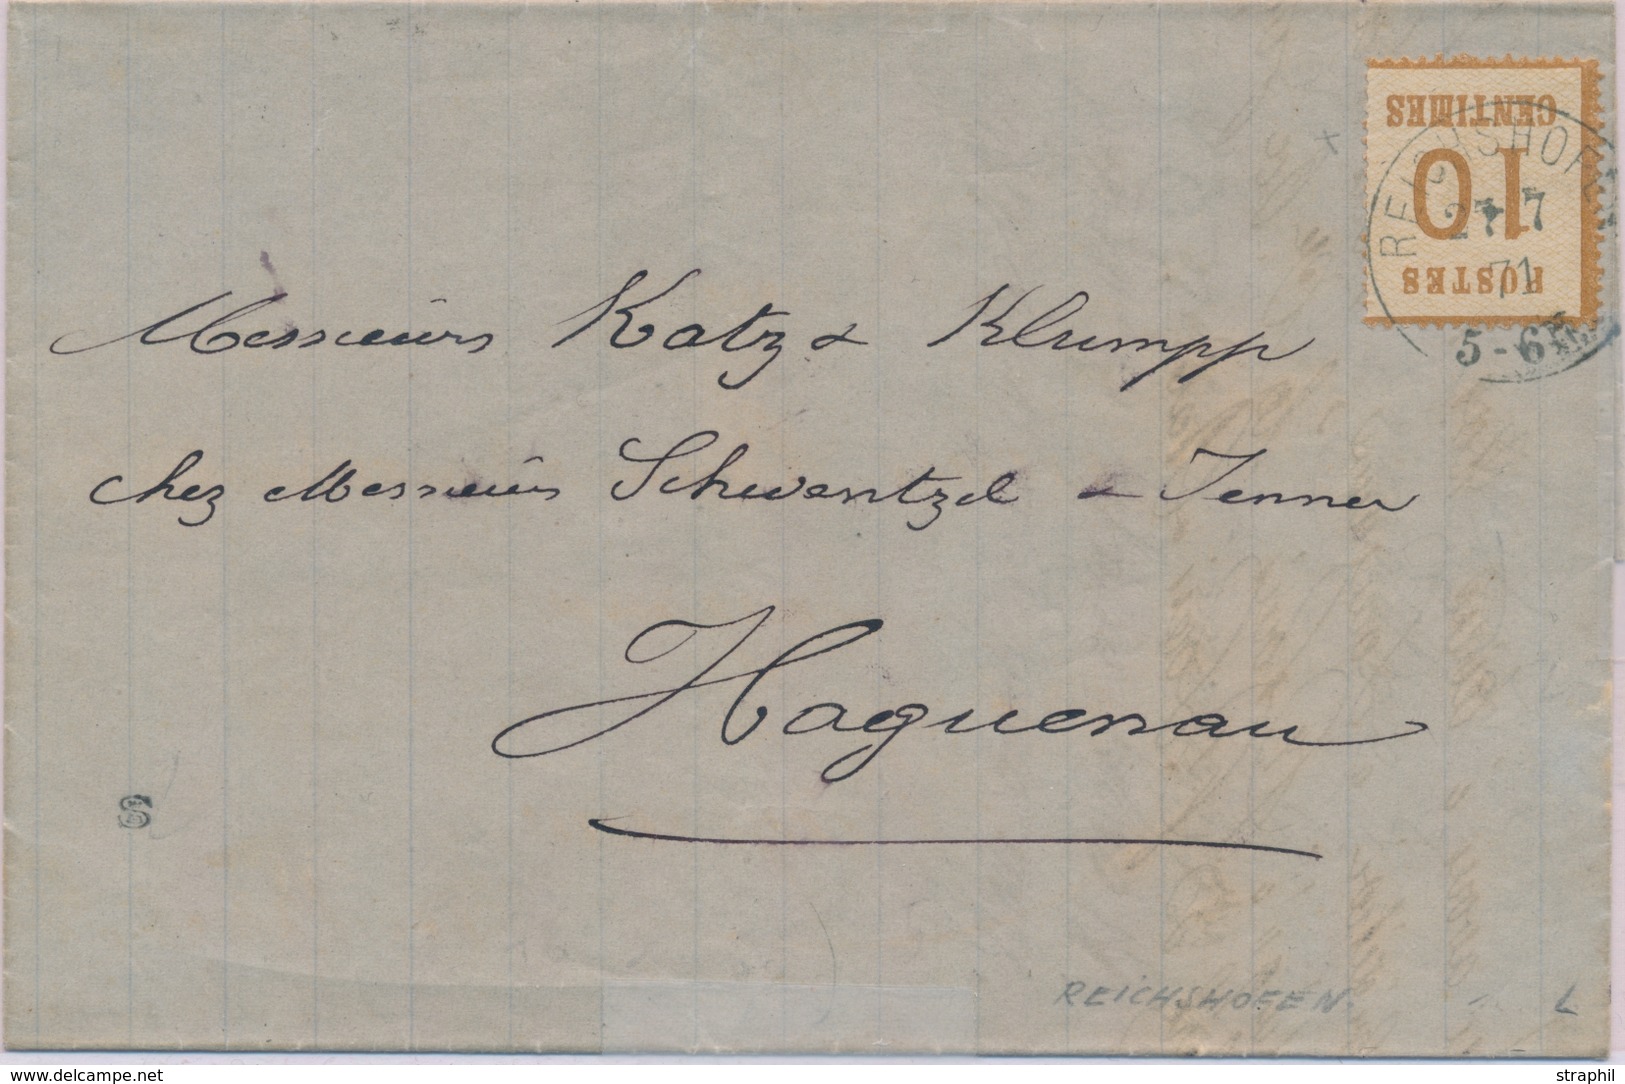 POSTES
10
CENTIMES
REICHSHOFEN
27 7
71
5-6
Messieurs Katz & Klumpp
chez Messieurs Schwentzel & Jenner
Haguenau
REICHSHOFEN
L
www.delcampe.net
straphil